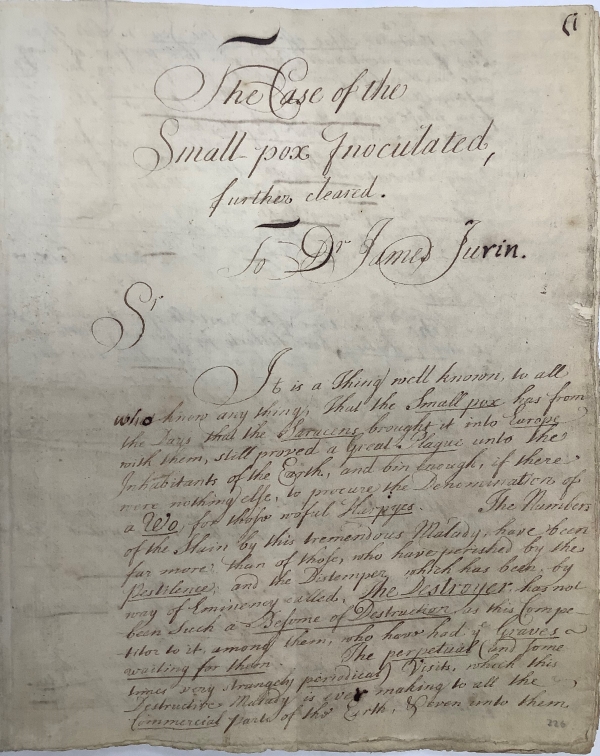 (1
The Case of the
Small-pox Inoculated,
further cleared.
To Dr James Jurin.
Sr
It is a Thing well known, to all
who know any thing, That the Small pox has from
the Days that the Saracens brought it into Europe
with them, still proved a Great Plague unto the
Inhabitants of the Earth, and bin enough, if there
were nothing else, to procure the Denomination of
a Wo, for those woful Harpyes. The Numbers
of the Slain by this tremendous Malady, have been
far more than of those, who have perished by the
Pestilence; and the Distemper which has been by
way of Eminency called, The Destroyer, has not
been such a Besome of Destruction, as this Compe-
titor to it, among them, who have had ye Graves
waiting for them. The perpetual (and some
times very strangely periodical) Visits, which this
Destructive Malady is ever making to all the
Commercial parts of the Earth, & even unto them
226